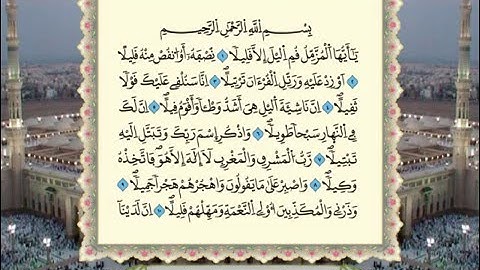 بِسْمِ اللَّهِ الرَّحْمَٰنِ الرَّحِيمِ
يَٰأَيُّهَا اَلْمُزَّمِّلُ قُمِ اِليْلَ إِلَّا قَلِيلاٗ ١ نِّصْفَهُۥ أَوُ اُنقُصْ مِنْهُ قَلِيلاً
٢ اَوْ زِدْ عَلَيْهِ وَرَتِّلِ اِلْقُرْءَانَ تَرْتِيلاً ٣ اِنَّا سَنُلْقِے عَلَيْكَ قَوْلاٗ
ثَقِيلاً ٤ اِنَّ نَاشِئَةَ اَليْلِ هِيَ أَشَدُّ وَطْـٔاٗ وَأَقْوَمُ قِيلاً ٥ اِنَّ لَكَ
فِے اِلنَّهَارِ سَبْحاٗ طَوِيلاٗ ٦ وَاذْكُرِ اِسْمَ رَبِّكَ وَتَبَتَّلِ اِلَيْهِ
تَبْتِيلاٗ ٧ رَّبُّ اُلْمَشْرِقِ وَالْمَغْرِبِ لَا إِلَٰهَ إِلَّا هُوَ فَاتَّخِذْهُ
وَكِيلاٗ ٨ وَاصْبِرْ عَلَىٰ مَا يَقُولُونَ وَاهْجُرْهُمْ هَجْراٗ جَمِيلاٗ ٩
وَذَرْنِے وَالْمُكَذِّبِينَ أُوْلِے اِلنَّعْمَةِ وَمَهِّلْهُمْ قَلِيلاً ١٠ اِنَّ لَدَيْنَا